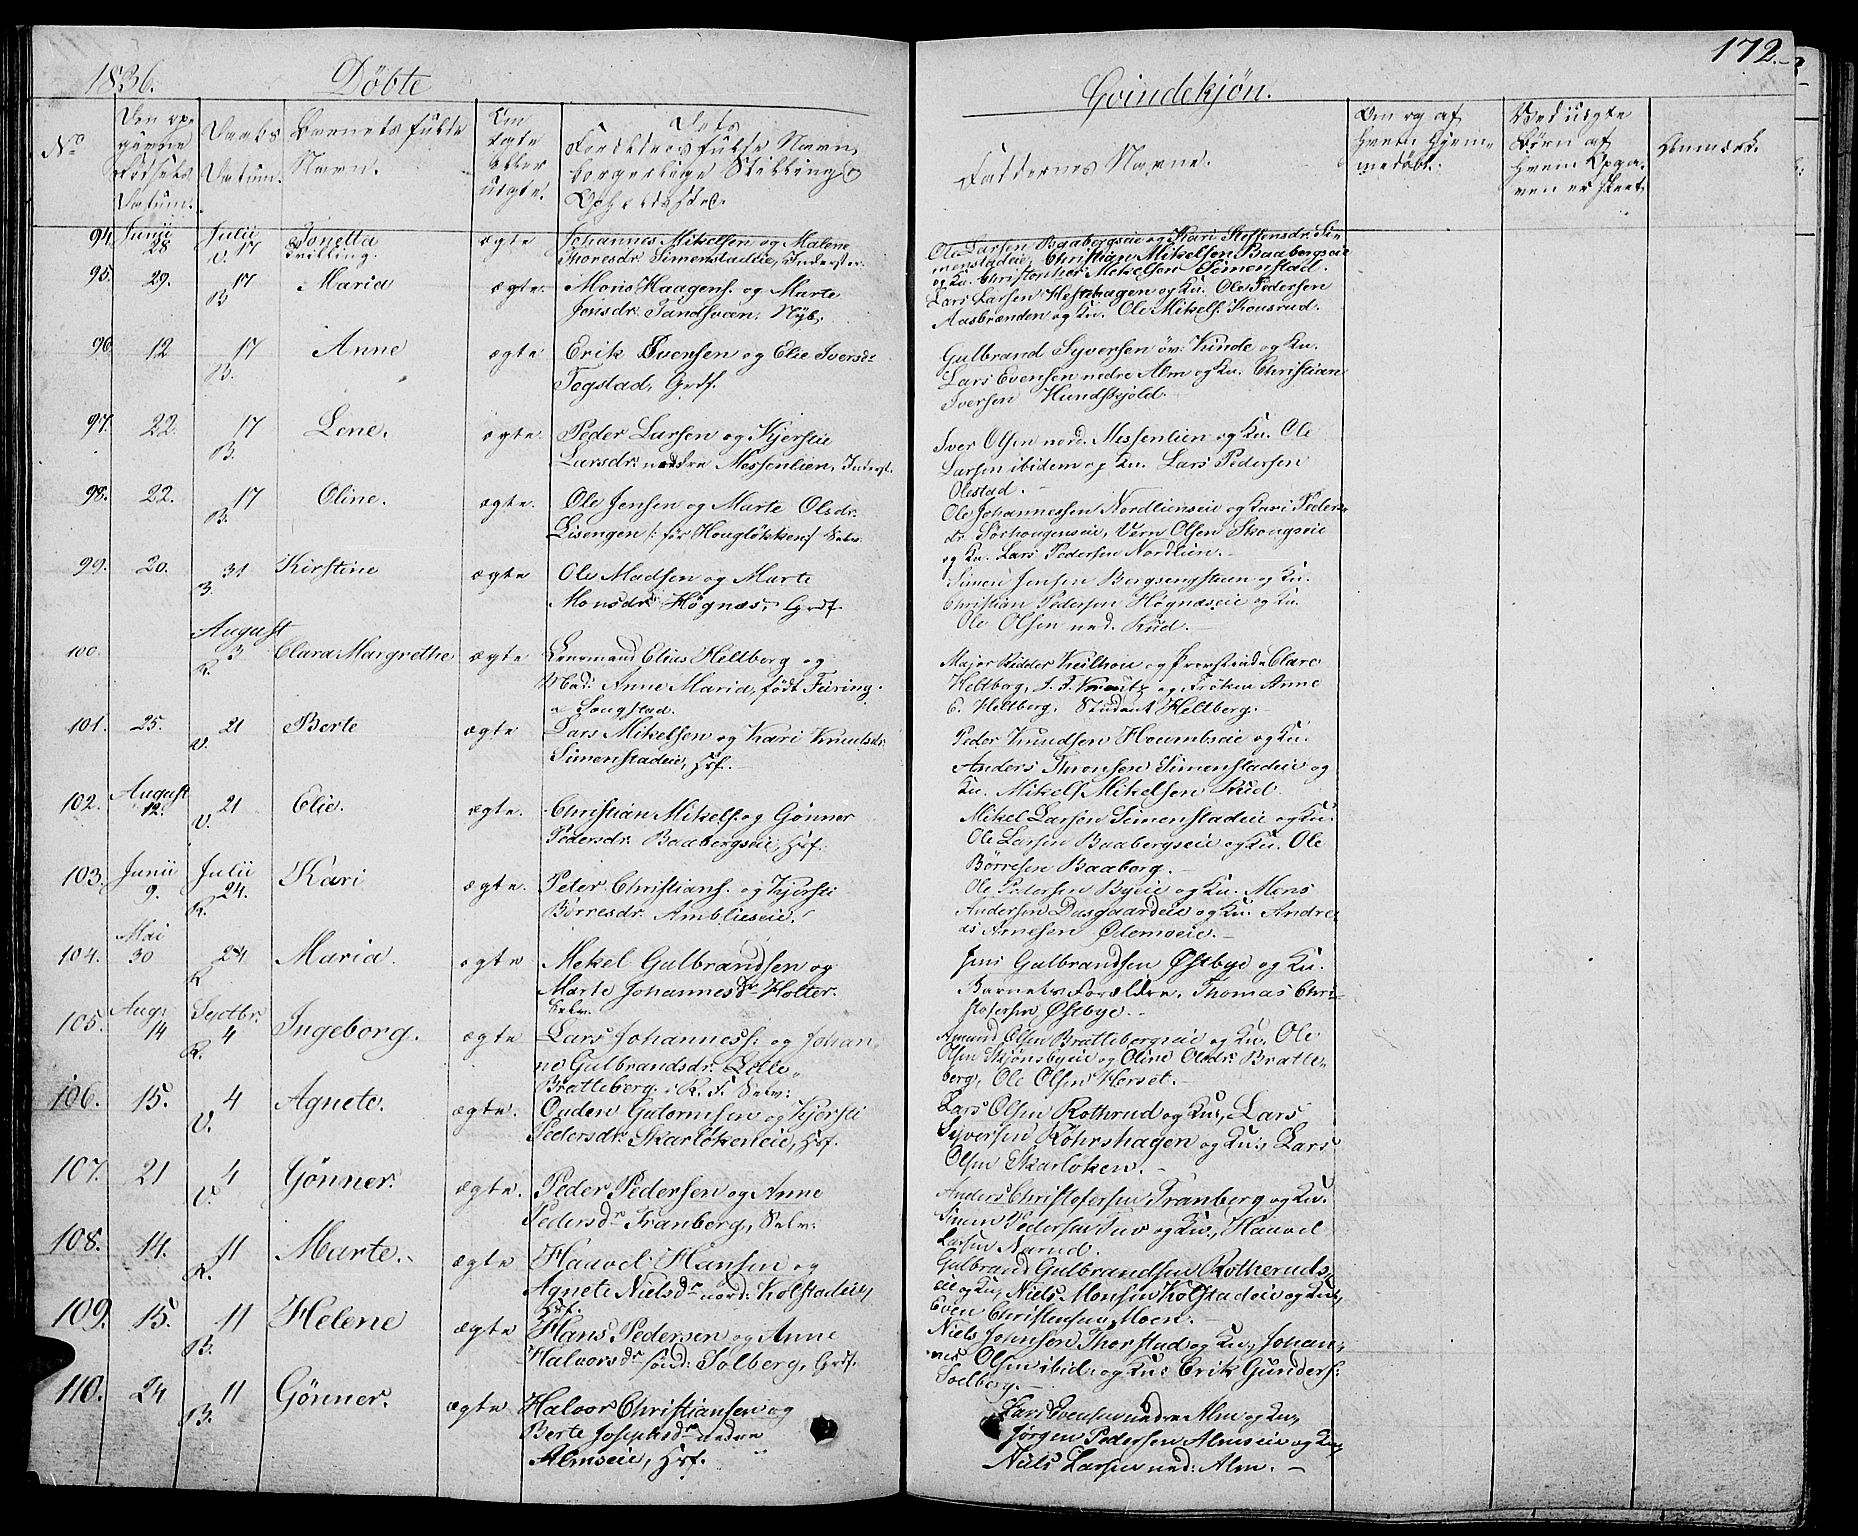 172.
1836. Døbte
Qvindekjøn.
No
Den op-
givne
Fødsels
Datum.
Daabs
Datum.
Barnets fulde
Navn.
Om
ægte
eller
uægte.
Dets
Forældres fulde Navn,
borgerlige Stilling og
Opholdssted.
Faddernes Navne.
Om og af
hvem hjem-
medøbt.
Ved uægte
Børn af
hvem Opga-
ven er skeet
Anmærk.
94. Junii 28 Julii V. 17 Tonetta Tvilling. ægte Johannes Mikelsen og Malene
Thoresdr. Simenstadeie, Inderster.
Ole Larsen Baabergseie og Kari Steffensdr. Si-
menstadeie, Christian Mikelsen Baabergseie
og Ku. Christopher Mikelsen Simenstad.
95. 29. 17 B. Maria ægte. Mons Haagens. og Marte
Jonsdr. Tandsvæen, Nÿb.
Lars Larsen Hestehagen og Ku. Ole Pedersen
Aasbrænden og Ku. Ole Mikels. Konsrud.
96. 12 17 B. Anne ægte Erik Svensen og Elie Iversdr
Togstad, Grdf.
Gulbrand Syversen øv. Kinde og Ku.
Lars Evensen nedre Alm og Ku. Christian
Iversen Hundskjold.
97. 22. 17 B. Lene. ægte. Peder Larsen og Kjerstie
Larsdr. nordre Messenlien, Inderst.
Iver Olsen nord. Messenlien og Ku. Ole
Larsen ibidem og Ku. Lars Pedersen
Olestad.
98. 22. 17 B. Oline. ægte. Ole Jensen og Marte Olsdr.
Lisengen /: før Houglökken :/ Selv.
Ole Johannessen Nordlienseie og Kari Peders-
dr. Sörhougenseie, Vern Olsen Skougseie
og Ku. Lars Pedersen Nordlien.
99. 20. 31 B. Kirstine ægte Ole Madsen og Marte
Monsdr. Høgnæs, Grdf.
Simen Jensen Bergsengsteen og Ku.
Christian Pedersen Høgnæseie og Ku.
Ole Olsen ned. Rüd.
100. August 3 R. Clara Margrethe ægte Lensmand Elias Heltberg og
Mad: Anne Maria, født Feiring.
Major Ridder Keilhou og Provstinde Clare
Heltberg, og Frøken Anne
E. Heltberg. Student Heltberg.
101. 25. 21 V. Berte ægte Lars Mikelsen og Kari Knutsdr.
Simenstadeie, Hsf.
Peder Knudsen Houmbseie og Ku.
Anders Thronsen Simenstadeie og
Ku. Mikels Mikelsen Rüd
102. August 12. 21 V. Elie. ægte. Christian Mikels. og Gønner
Pedersdr. Baabergseie, Hsf.
Mikel Larsen Simenstadeie og Ku.
Ole Larsen Baabergseie og Ku. Ole
Børresen Baaberg.
103. Junii 9. Julii 24. R. Kari ægte. Peter Christians. og Kjersti
Børresdr. Amblieseie.
Ole Pedersen Byeie og Ku. Mons
Andersen Dasgaardeie og Ku. Andre-
as Arnesen Ødemoeie.
104. Mai 30 24 R. Maria. ægte Mekel Gulbrandsen og
Marte Johannesdr Holter.
Selv.
Jens Gulbrandsen Østbye og Ku.
Barnets Forældre. Thomas Chri-
stofersen Østbye.
105. Aug: 14 Septbr. 4 R. Ingeborg. ægte Lars Johanness: og Johan-
ne Gulbrandsdr. Lille-
Bratteberg i R. S. Selv:
Amund Olsen Brattebergseie og Ku. Ole
Olsen Skjønsbyeie og Oline Olsdr. Bratte-
berg, Ole Olsen Herset.
106. 15. 4 V. Agnete. ægte. Ouden Gutormsen og Kjersti
Pedersdr. Skarløkeneie, Hsf.
Lars Olsen Rothrud og Ku, Lars
Syversen Röhrshagen og Ku, Lars
Olsen Skarloken.
107. 21 4 V. Gønner. ægte. Peder Pedersen og Anne
Pedersdr Tranberg, Selv:
Anders Christofersen Tranberg og Ku.
Simen Pedersen Tuv og Ku., Haavel
Larsen Narud.
108. 14. 11 R. Marte. ægte Haavel Hansen og
Agnete Nielsdr nord: Kolstadeie,
Hsf.
Gulbrand Gulbrandsen Rotheruds-
eie og Ku, Niels Monsen Kolstadeie og Ku,
Even Christensen Moen.
109. 15. 11 B. Helene ægte Hans Pedersen og Anne
Halvorsdr sönd: Solberg, Grdf.
Niels Johnsen Thorstad og Ku, Johan-
nes Olsen ibid: og Ku: Erik Gunders:
Soelberg.
110. 24 11 B. Gønner. ægte Halvor Christiansen og
Berte Josephsdr nedre
Almseie, Hsf.
Lars Evensen nedre Alm og Ku,
Jørgen Pedersen Almseie og Ku,
Niels Larsen ned: Alm.